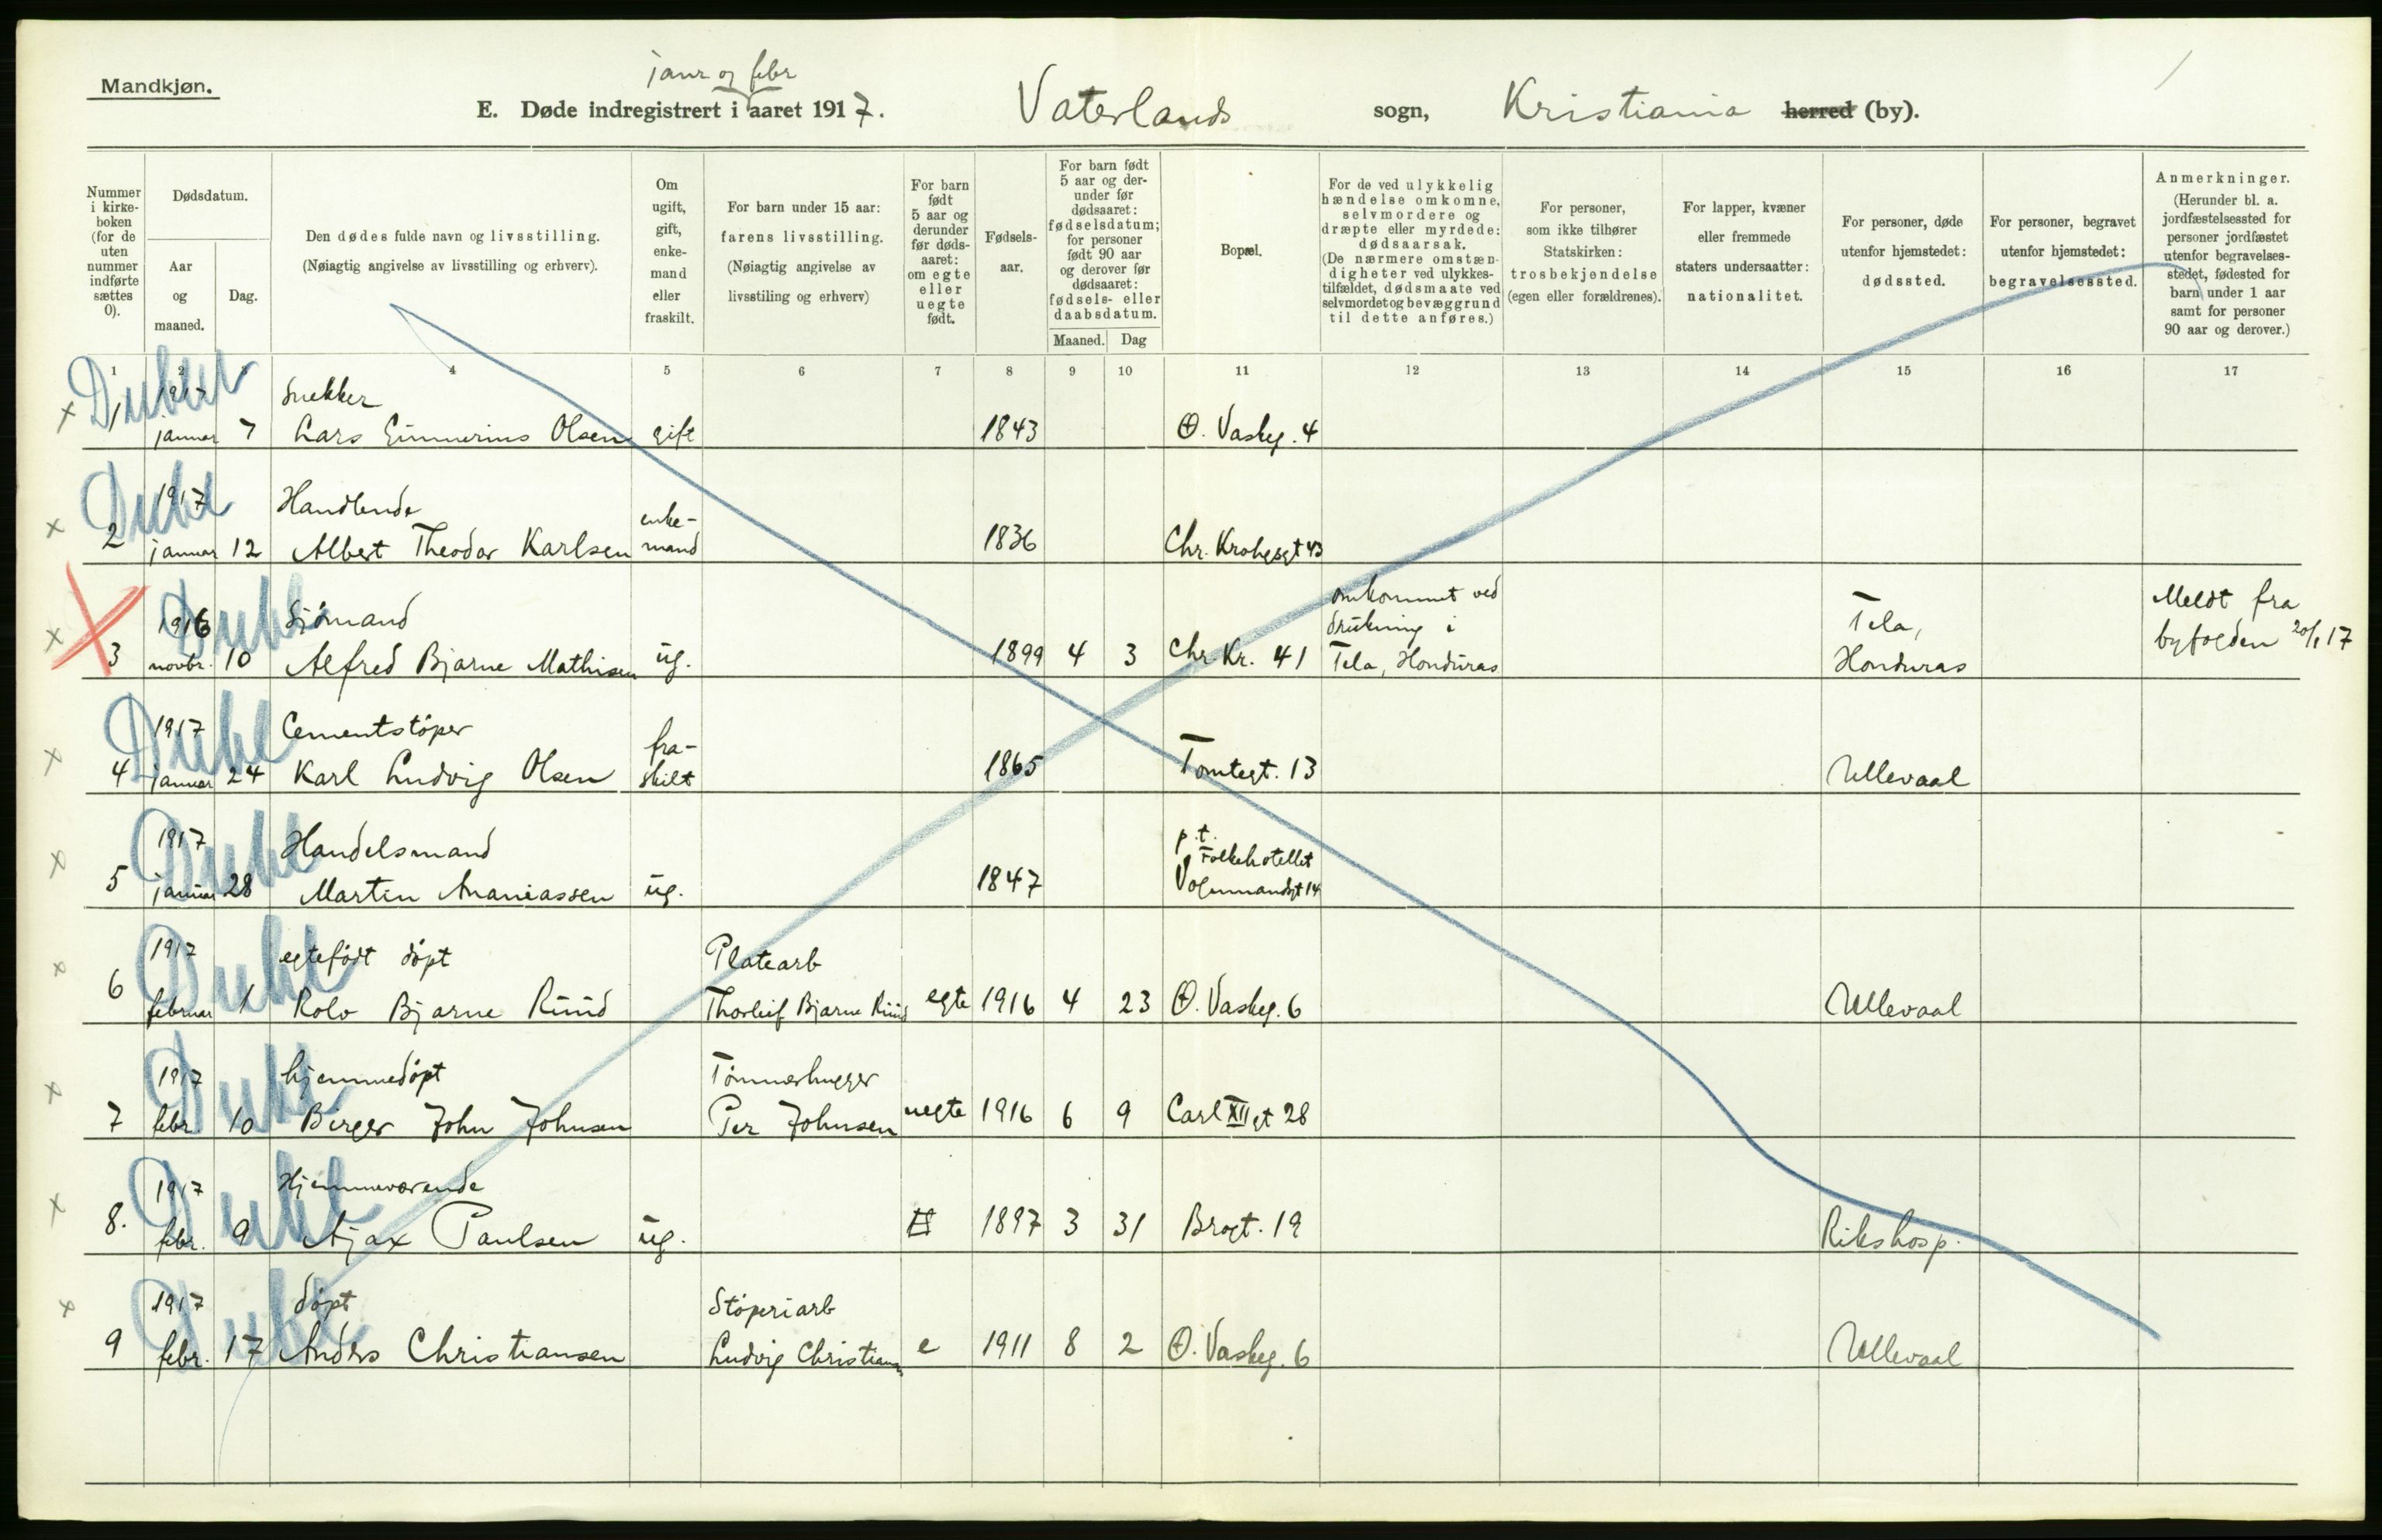 Mandkjøn.
janr og febr
E. Døde indregistrert i aaret 1917. Vaterlands sogn, Kristiania herred (by).
Nummer i kirkeboken (for de uten nummer indførte sættes 0).
Dødsdatum.
Aar og maaned.
Dag.
Den dødes fulde navn og livsstilling.
(Nøiagtig angivelse av livsstilling og erhverv).
Om ugift, gift, enkemand eller fraskilt.
For barn under 15 aar: farens livsstilling.
(Nøiagtig angivelse av livsstiling og erhverv)
For barn født 5 aar og derunder før dødsaaret: om egte eller uegte født.
Fødselsaar.
For barn født 5 aar og derunder før dødsaaret: fødselsdatum; for personer født 90 aar og derover før dødsaaret: fødsels- eller daabsdatum.
Maaned. Dag
Bopæl.
For de ved ulykkelig hændelse omkomne, selvmordere og dræpte eller myrdede: dødsaarsak.
(De nærmere omstændigheter ved ulykkestilfældet, dødsmaate ved selvmordet og bevæggrund til dette anføres.)
For personer, som ikke tilhører Statskirken: trosbekjendelse (egen eller forældrenes).
For lapper, kvæner eller fremmede staters undersaatter: nationalitet.
For personer, døde utenfor hjemstedet: dødssted.
For personer, begravet utenfor hjemstedet: begravelsessted.
Anmerkninger.
(Herunder bl. a. jordfæstelsessted for personer jordfæstet utenfor begravelsesstedet, fødested for barn under 1 aar samt for personer 90 aar og derover.)
1 2 3 4 5 6 7 8 9 10 11 12 13 14 15 16 17
1917 Snekker
1 januar 7 Lars Olsen gift 1843 Ø. Vaskeg. 4
1917 Handlende enke-
2 januar 12 Albert Theodor Karlsen mand 1836 Chr. Krohgsgt 43
1916 Sjömand omkommet ved drukning i Tela, Meldt fra
3 novbr. 10 Alfred Bjarne Mathisen ug. 1899 4 3 Chr. Kr. 41 Tela, Honduras Honduras byfogden 20/1 17
1917 Cementstöper fra-
4 januar 24 Karl Ludvig Olsen skilt 1865 Tomtegt. 13 Ullevaal
1917 Handelsmand p.t. Folkehotellet
5 januar 28 Martin Ananiassen ug. 1847 Vognmandsgt 14
1917 egtefödt döpt Platearb
6 februar 1 Rolv Bjarne Ruud Thorleif Bjarne Ruud egte 1916 4 23 Ø. Vaskeg. 6 Ullevaal
1917 hjemmedöpt Tömmerhugger
7 febr. 10 Birger John Johnsen Per Johnsen uegte 1916 6 9 Carl XII gt 28
1917 Hjemmeværende
8. febr. 9 Ajax Paulsen ug. 1897 3 31 Brogt. 19 Rikshosp.
1917 döpt Stöperiarb
9 febr. 17 Anders Christiansen Ludvig Christiansen e 1911 8 2 Ø. Vaskeg. 6 Ullevaal